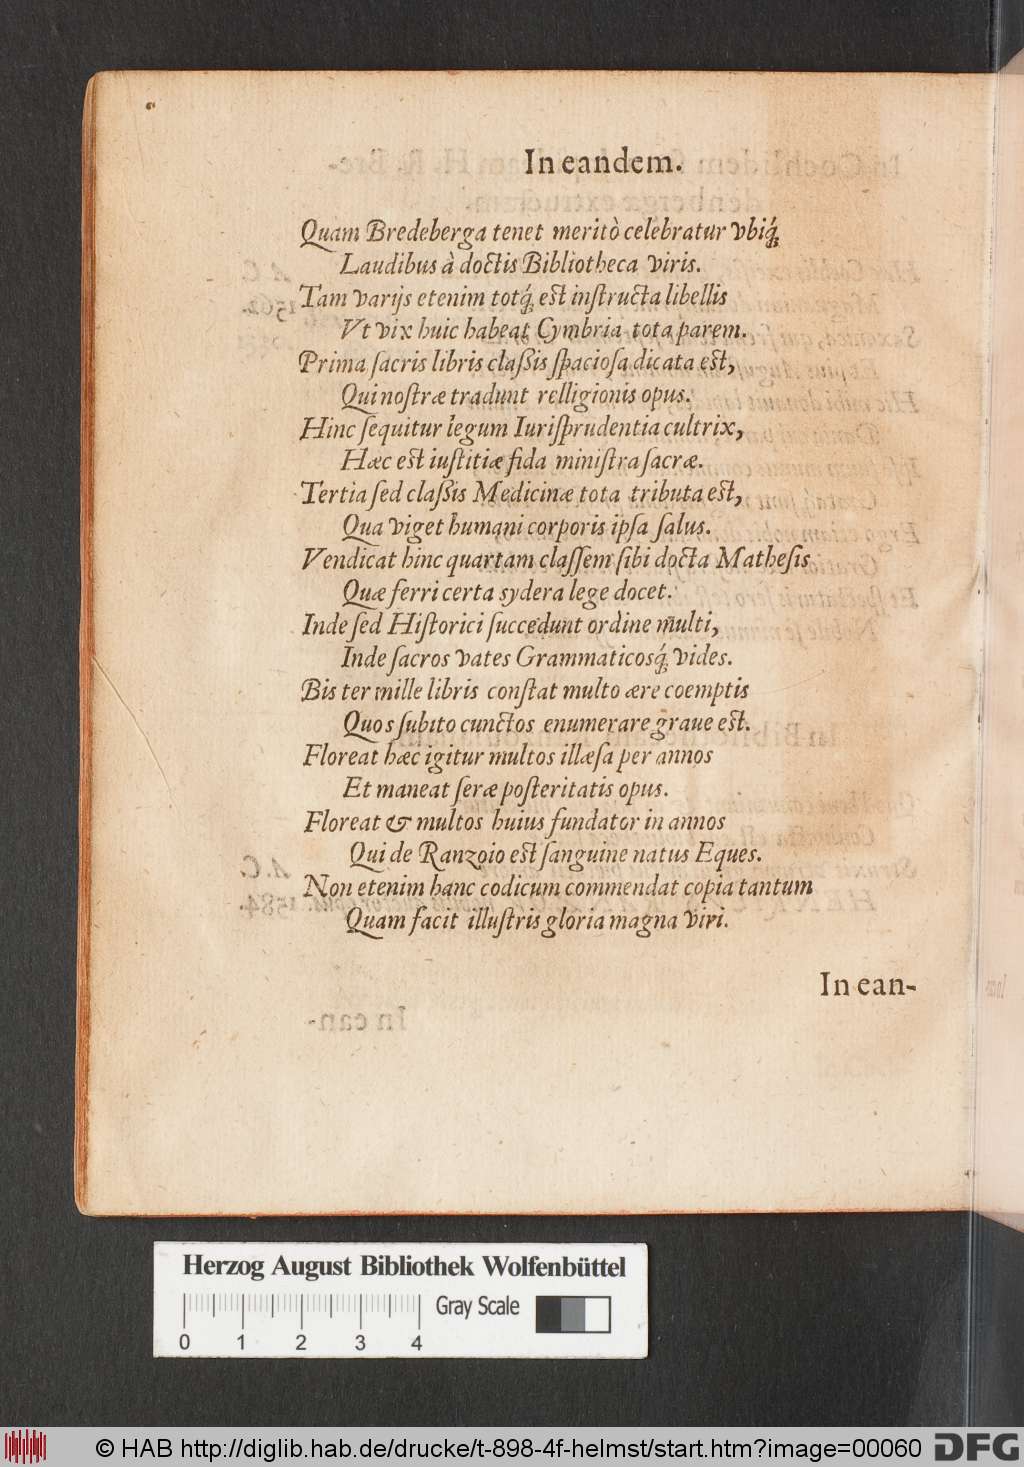 In eandem.
Quam Bredeberga tenet meritò celebratur vbiq́;
Laudibus à doctis Bibliotheca viris.
Tam varijs etenim totq́; est instructa libellis
Vt vix huic habeat Cymbria tota parem.
Prima sacris libris classis spaciosa dicata est,
Qui nostræ tradunt relligionis opus.
Hinc sequitur legum Iurisprudentia cultrix,
Hæc est iustitiæ fida ministra sacræ.
Tertia sed classis Medicinæ tota tributa est,
Qua viget humani corporis ipsa salus.
Vendicat hinc quartam classem sibi docta Mathesis
Quæ ferri certa sydera lege docet.
Inde sed Historici succedunt ordine multi,
Inde sacros vates Grammaticosq́; vides.
Bis ter mille libris constat multo ære coemptis
Quos subito cunctos enumerare graue est.
Floreat hæc igitur multos illæsa per annos
Et maneat seræ posteritatis opus.
Floreat & multos huius fundator in annos
Qui de Ranzoio est sanguine natus Eques.
Non etenim hanc codicum commendat copia tantum
Quam facit illustris gloria magna viri.
In ean-
Herzog August Bibliothek Wolfenbüttel
Gray Scale
0 1 2 3 4
© HAB http://diglib.hab.de/drucke/t-898-4f-helmst/start.htm?image=00060
DFG